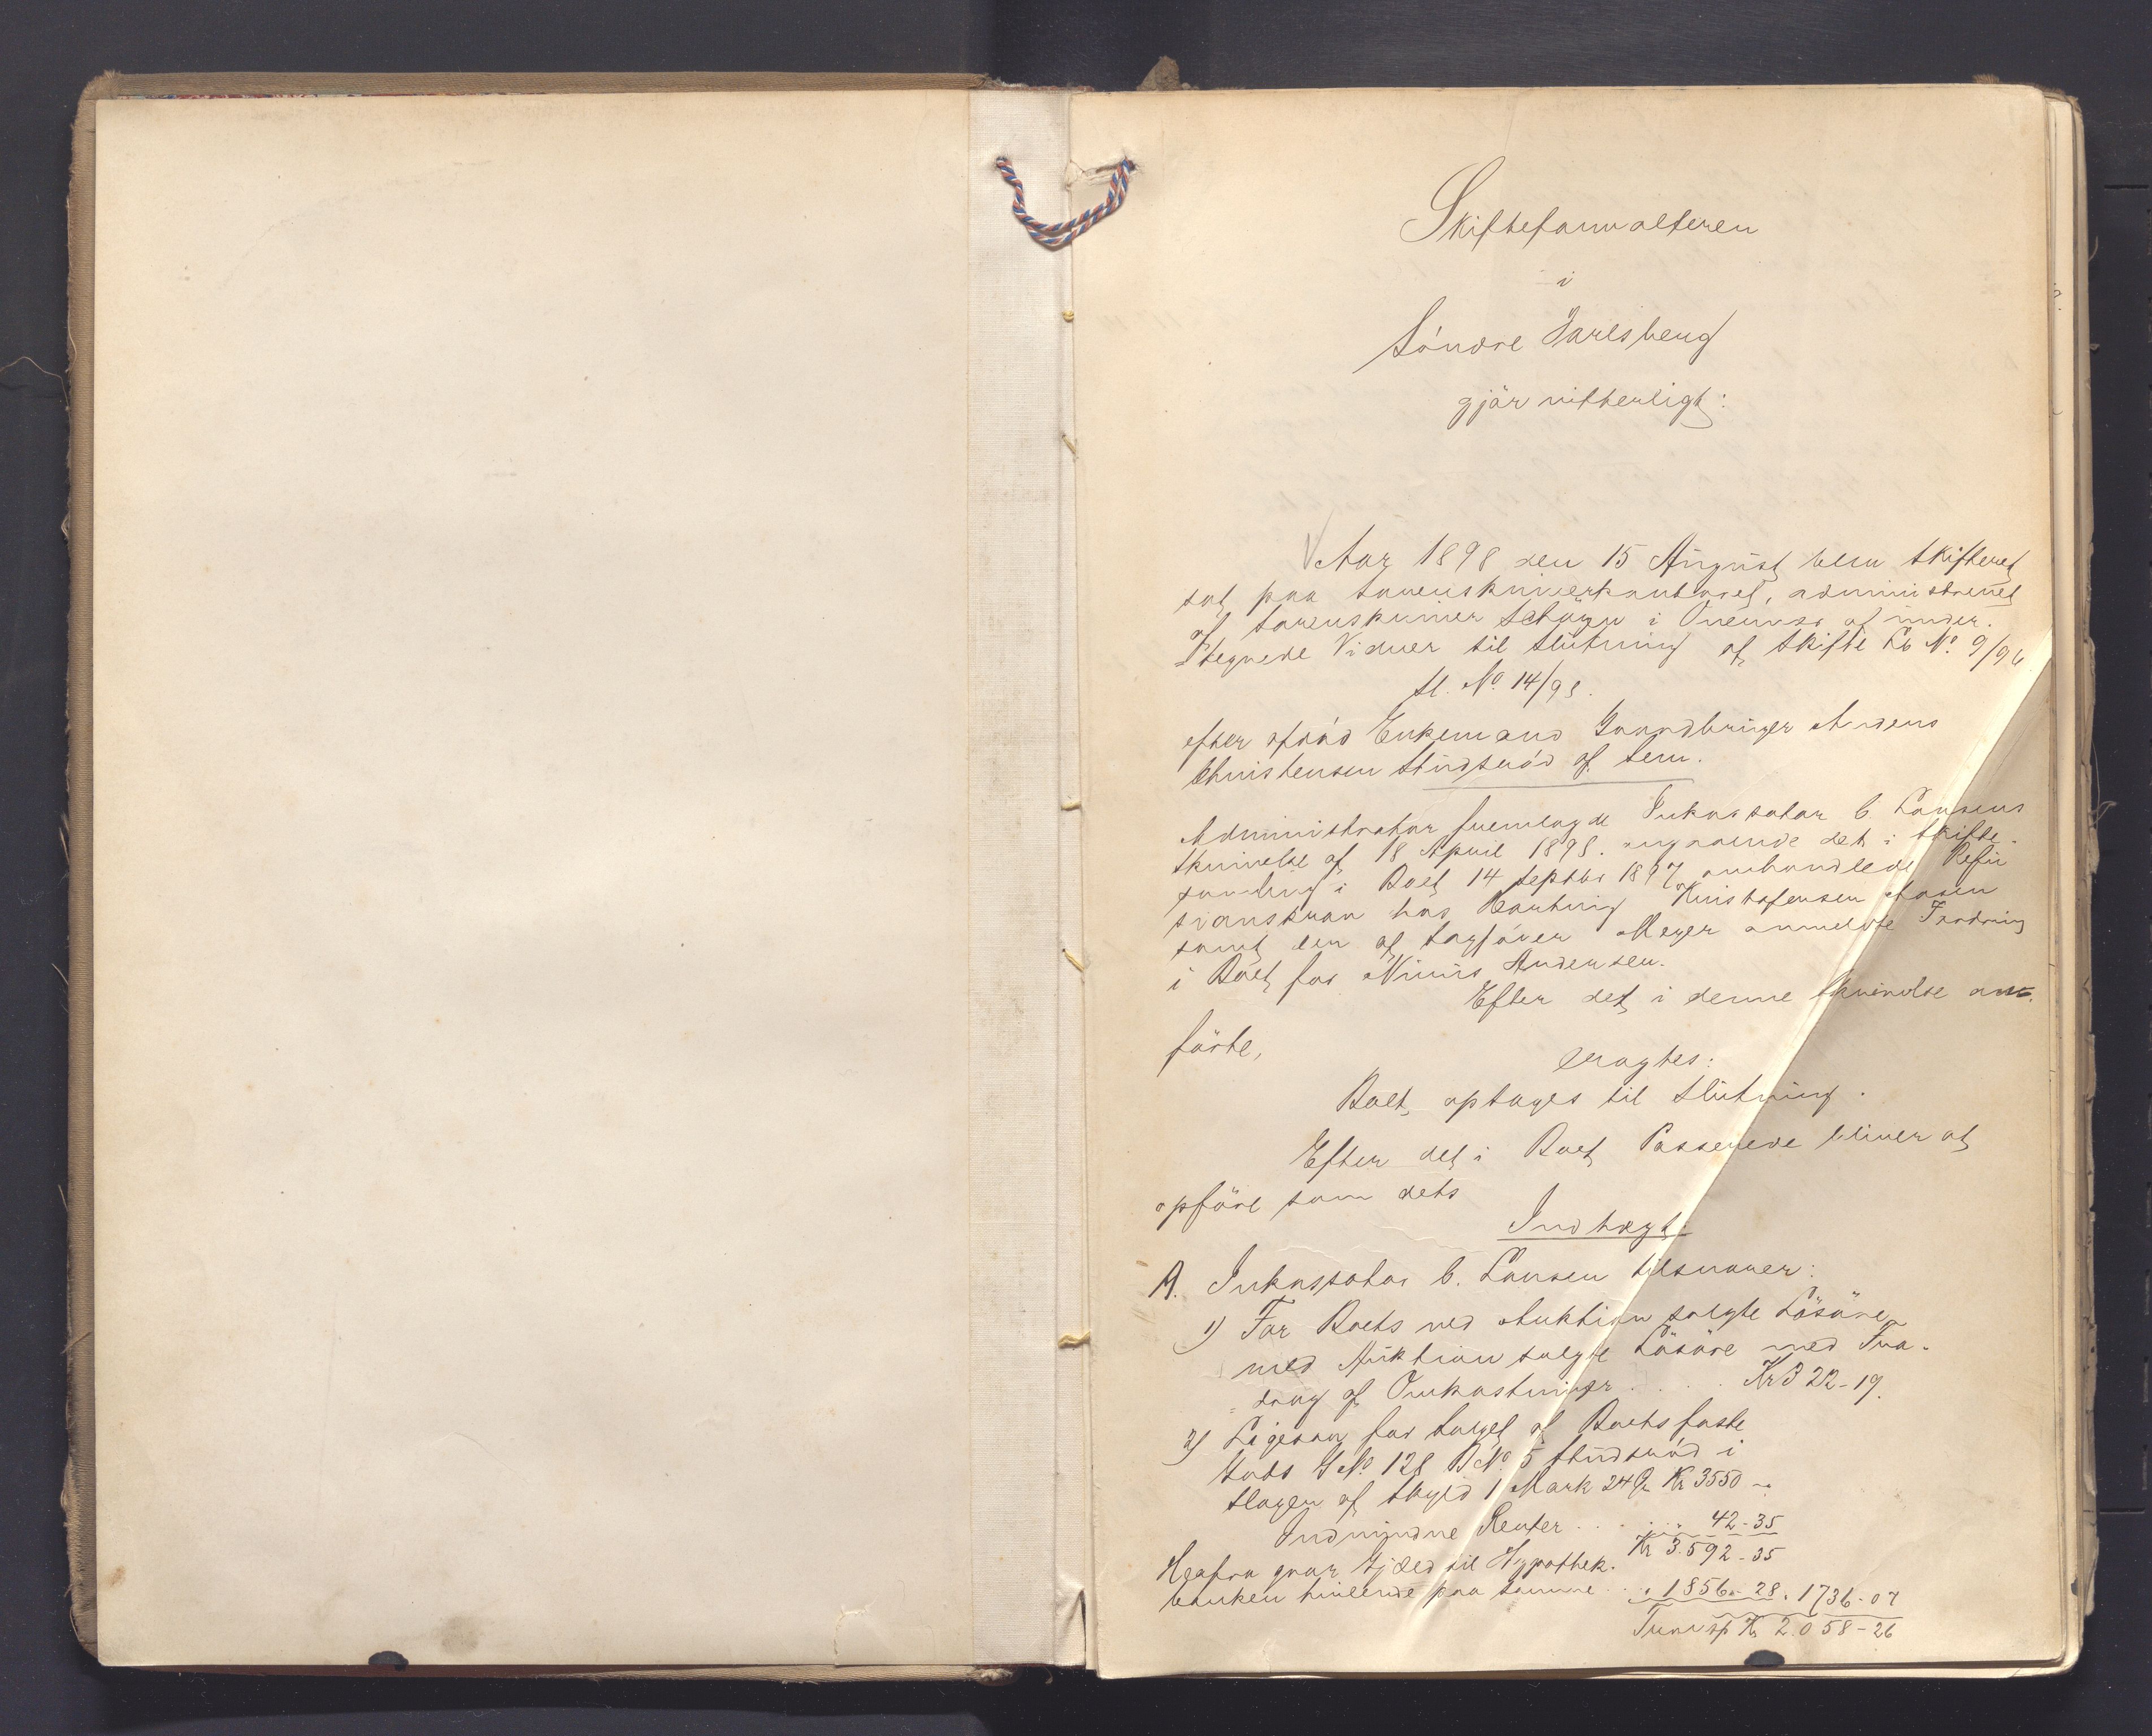 Skifteforvalteren
i
Söndre Jarlsberg
gjör vitterligt:
Aar 1898 den 15 August blev Skifteret
sat paa Sorenskriverkontoret, administreret
af Sorenskriver i Overvær af under.
tegnede Vidner til Slutning af Skifte Lb No. 9/96
Sl. No. 14/98.
efter afdöd Enkemand Gaardbruger Anders
Christensen Slindseröd af Sem.
Administrator fremlagde Inkassator C. Larsens
Skrivelse af 18 April 1898. angaaende det i Skifte-
samling i Boet 14 Septbr 1897 omhandlede Refu
sionskrav hos Kristofersen Aasen
samt den af Sagförer Meyer anmeldte Fordring
i Boet for Andersen.
Efter det i denne Skrivelse an-
förte,
eragtes:
Boet optages til Slutning.
Efter det i Boet Passerede bliver at
opföre som dets
Indtægt:
A. Inkassator C. Larsen tilsvarer:
1) For Boets ved Auktion solgte Lösöre
med Auktion solgte Lösöre med Fra-
drag af Omkostninger . . . . . Kr 322-19.
2) Ligesaa for Salget af Boets faste
Gods G No 128 B No. 5 Slindseröd i
Slagen af Skyld 1 Mark 24 Ör Kr 3550 -
Indvundne Renter . . . . . 42-35
Kr 3.592-35
Heafra gaar Gjæld til Hypothek.
banken hvilende paa samme . . . 1856-28. 1736-07
Transp Kr 2.058-26